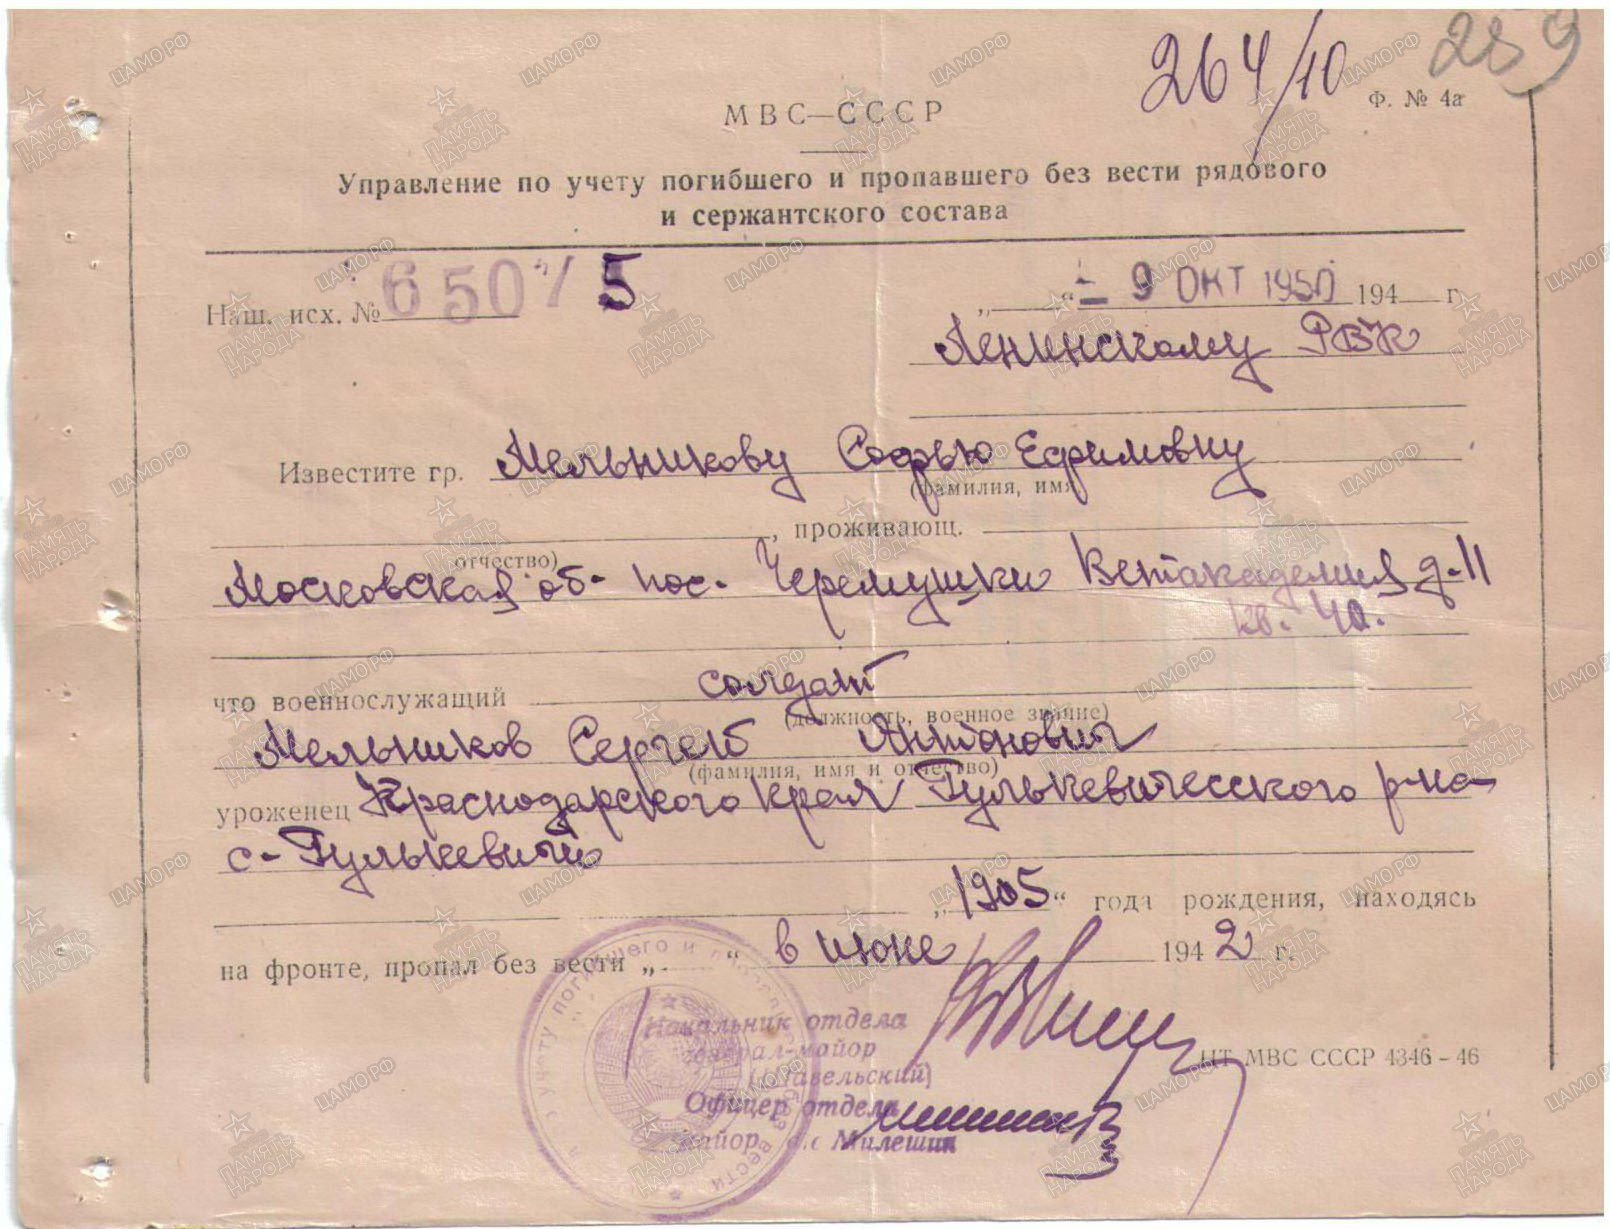 264/10 289
Ф. № 4а
МВС—СССР
Управление по учету погибшего и пропавшего без вести рядового
и сержантского состава
Наш. исх. № 650 / 5
„ “ – 9 ОКТ 1950 194 г.
Ленинскому РВК
Известите гр. Мельникову Софью Ефимовну
(фамилия, имя
, проживающ.
отчество)
Московская об- пос. Черемушки Ветакадемия д-11
кв. 40.
что военнослужащий солдат
(должность, военное звание)
Мельников Сергей Антонович
(фамилия, имя и отчество)
уроженец Краснодарского края Гулькевичесского р-на
с-Гулькевичи
„1905“ года рождения, находясь
на фронте, пропал без вести „ “ в июне 1942 г.
Начальник отдела
генерал-майор
(Шавельский)
ЦТ МВС СССР 4346-46
Офицер отдела
майор а/с Милешин
учету погибшего и вести
ПАМЯТЬ НАРОДА
ЦАМО РФ